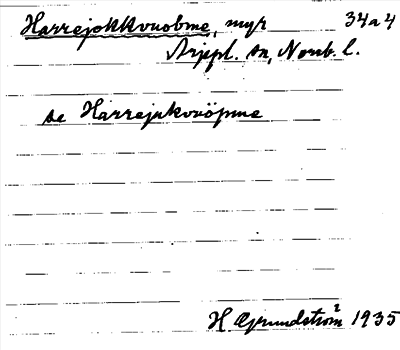 Harrejokkvuobme, myr 34a4
Arjepl. sn, Norrb. l.
se Harrejukvuöpme
H Grundström 1935